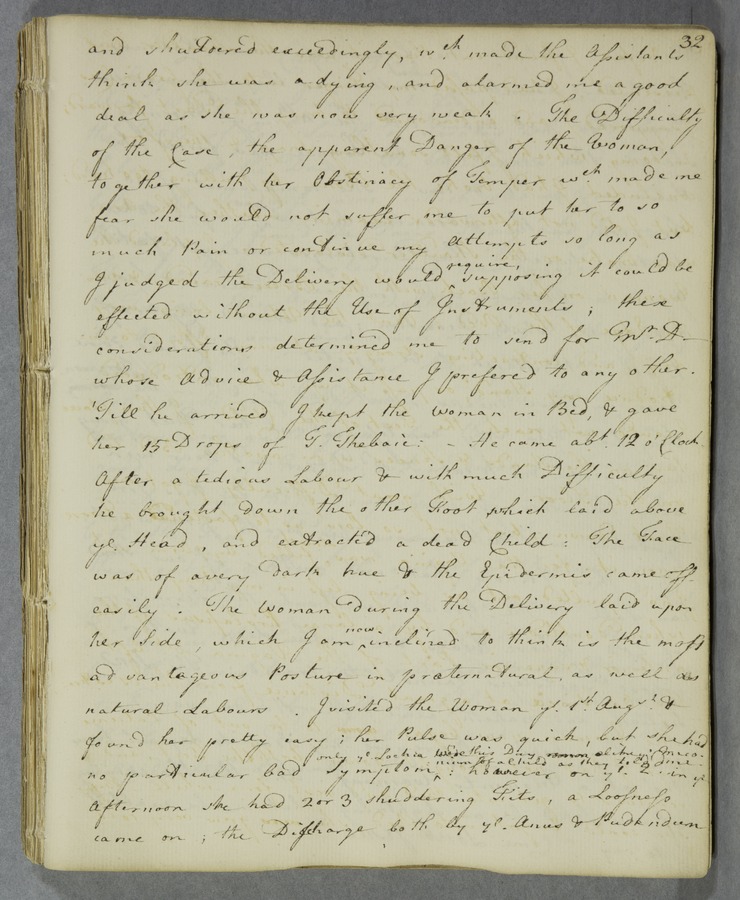 32
and shuddered exceedingly, wch. made the Assistants
think she was a dying, and alarmed me a good
deal as she was now very weak. The Difficulty
of the Case, the apparent Danger of the Woman,
together with her Obstinacy of Temper wch. made me
fear she would not suffer me to put her to so
much Pain or continue my Attempts so long as
I judged the Delivery would require, supposing it could be
effected without the Use of Instruments; these
considerations determined me to send for Grn. Dr
whose Advice & Assistance I prefered to any other.
'Till he arrived I kept the woman in Bed, & gave
her 15 Drops of T. Thebaic: - He came abt. 12 o'Clock.
After a tedious Labour & with much Difficulty
he brought down the other Foot which laid above
ye. Head, and extracted a dead Child: The Face
was of a very dark hue & the Epidermis came off
easily. The Woman during the Delivery laid upon
her Side, which I am now inclined to think is the most
advantageous Posture in præternatural, as well as
natural Labours. I visited the Woman ye. 1st. Augst. &
found her pretty easy; her Pulse was quick, but she had
only ye. Lochia were this Day
of a Child as they told me
no particular bad Symptom: however on ye. 2. in ye
Afternoon she had 2 or 3 shuddering Fits, a Looseness
came on; the Discharge both by ye. Anus & Pudendum